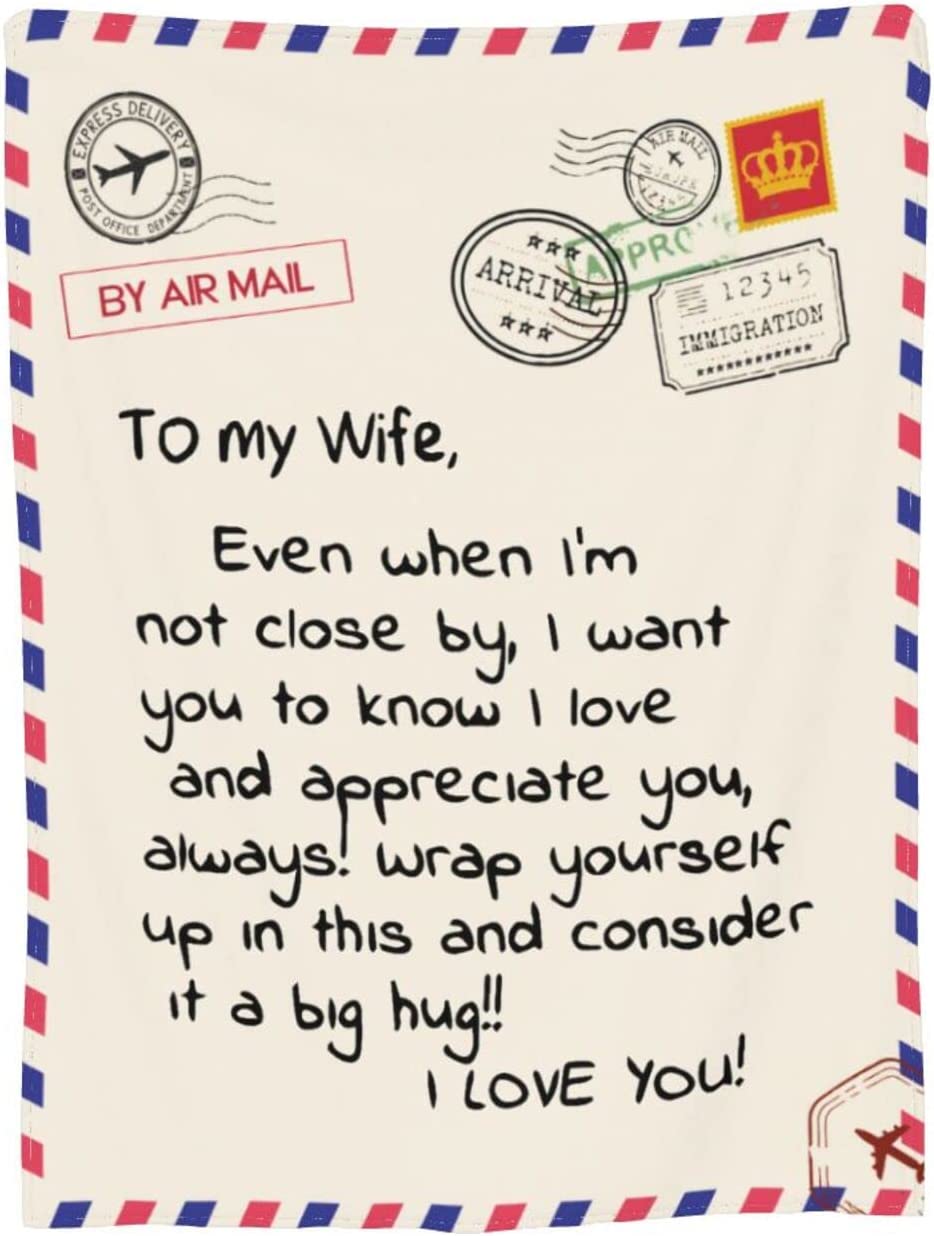 EXPRESS DELIVERY
POST OFFICE DEPARTMENT
AIR MAIL
12345
APPROVE
BY AIR MAIL
ARRIVAL
12345
IMMIGRATION
To my Wife,
Even when I'm
not close by, I want
you to know I love
and appreciate you,
always! Wrap yourself
up in this and consider
it a big hug!!
I LOVE YOU!